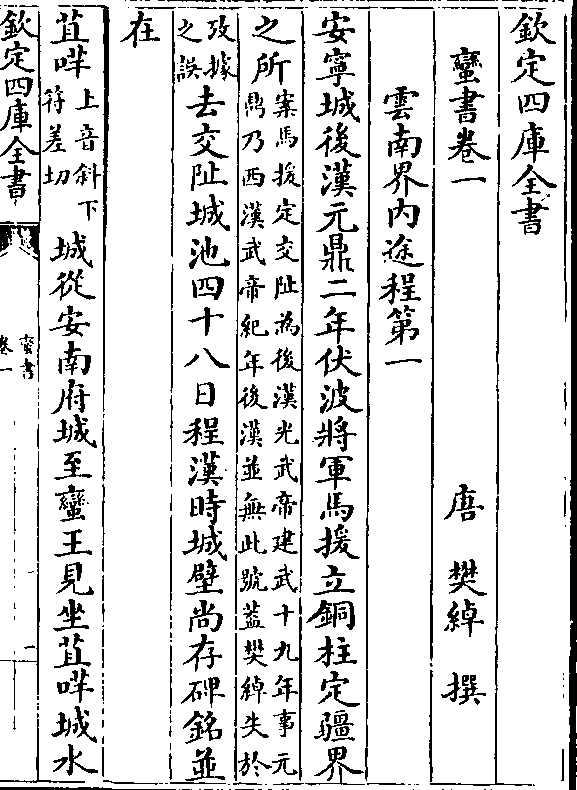 欽定四庫全書
蠻書卷一
唐 樊綽 撰
雲南界内途程第一
安寧城後漢元鼎二年伏波將軍馬援立銅柱定疆界
之所案馬援定交阯為後漢光武帝建武十九年事元
鼎乃西漢武帝紀年後漢並無此號蓋樊綽失於
攷據
之誤去交阯城池四十八日程漢時城壁尚存碑銘並
在
苴咩上音斜下
符差切城從安南府城至蠻王見坐苴咩城水
欽定四庫全書
蠻書
卷一
一